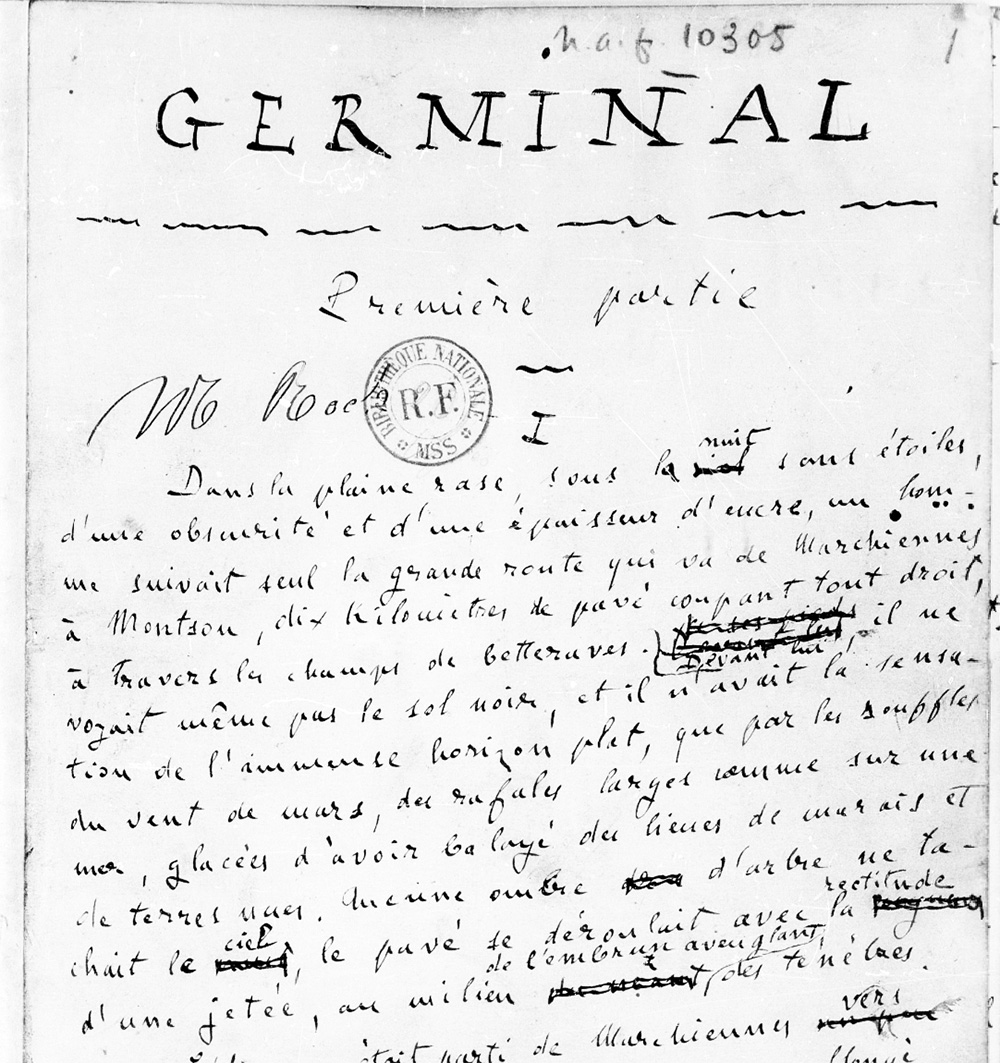 n.a.f. 10305
1
GERMINAL
Première partie
BIBLIOTHÈQUE NATIONALE
R.F.
MSS
I
nuit
Dans la plaine rase, sous la sans étoiles,
d'une obscurité et d'une épaisseur d'encre, un hom-
me suivait seul la grande route qui va de Marchiennes
à Montsou, dix kilomètres de pavé coupant tout droit,
à travers les champs de betteraves. Devant lui, il ne
voyait même pas le sol noir, et il n'avait la sensa-
tion de l'immense horizon plat, que par les souffles
du vent de mars, des rafales larges comme sur une
mer, glacées d'avoir balayé des lieues de marais et
de terres nues. Aucune ombre d'arbre ne ta-
rectitude
chait le ciel, le pavé se déroulait avec la
de l'embrun aveuglant
d'une jetée, au milieu des ténèbres.
vers
était parti de Marchiennes